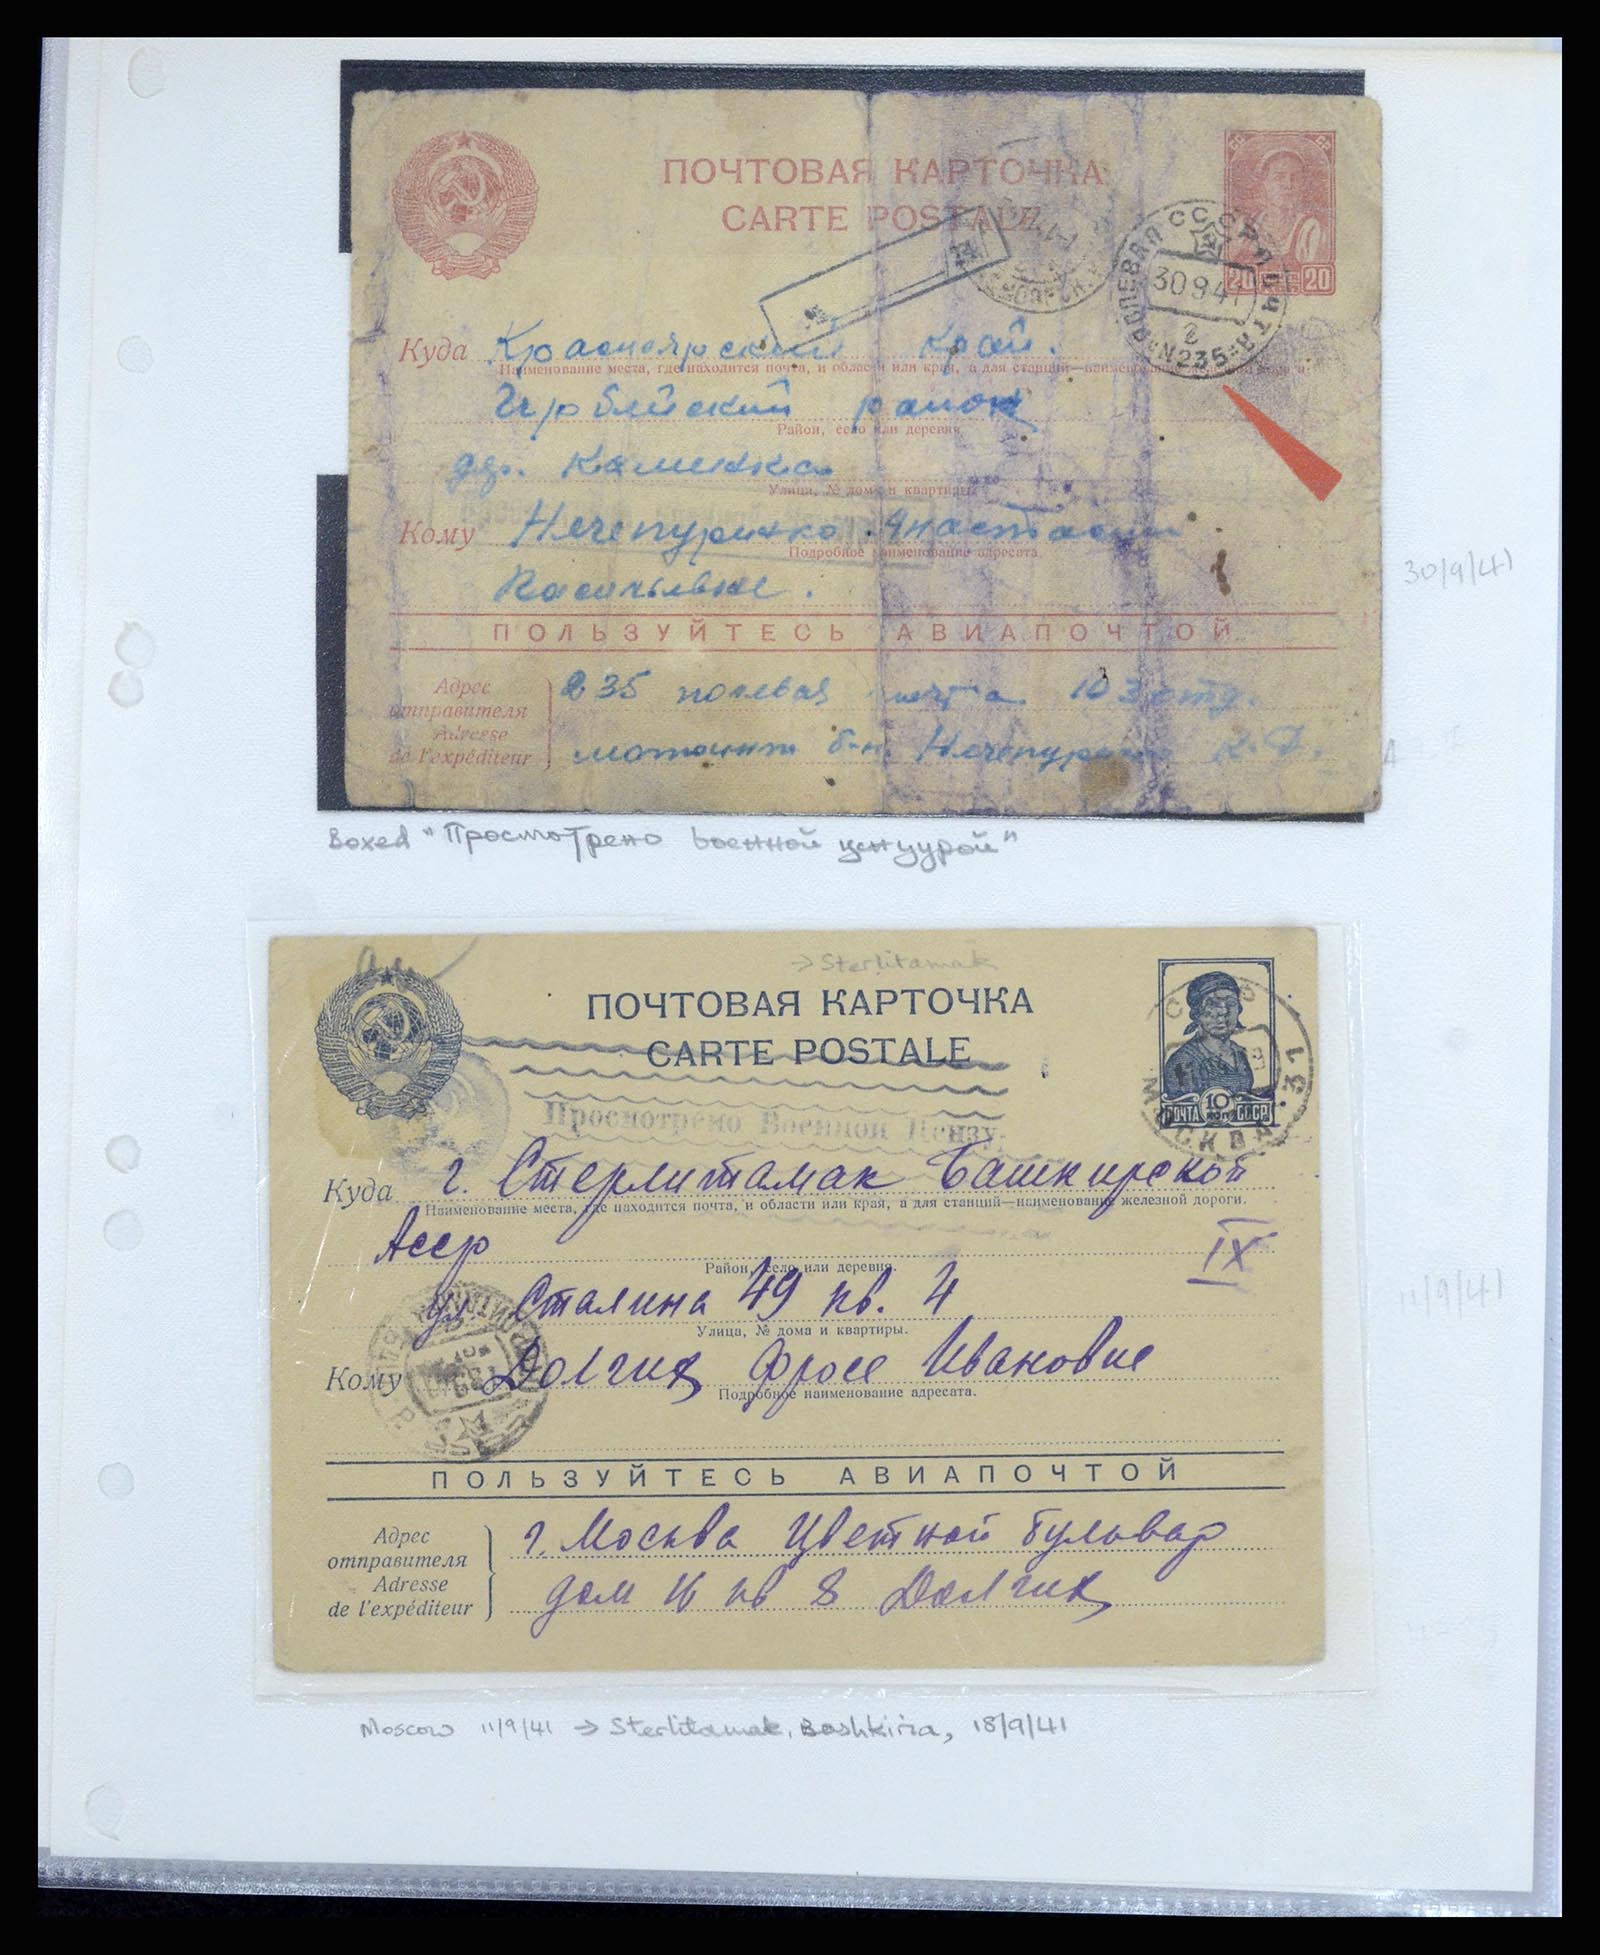 ПОЧТОВАЯ КАРТОЧКА
CARTE POSTALE
СССР
20 20
ПОЛЕВАЯ ПОЧТА
30 9 41
2
N235
Куда Красноярский край.
Наименование места, где находится почта, и области или края, а для станций—наименование
Ирбейский район
Район, село или деревня
дер. Каменка
Улица, № дома и квартиры
Кому Нечепуренко Анастасии
Подробное наименование адресата.
Васильевне.
ПОЛЬЗУЙТЕСЬ АВИАПОЧТОЙ
Адрес отправителя
Adresse de l'expéditeur
235 полевая почта 103 отд.
Нечепуренко
30/9/41
Boxed "Просмотрено военной цензурой"
→ Sterlitamak
ПОЧТОВАЯ КАРТОЧКА
CARTE POSTALE
ПОЧТА 10 КОП СССР
МОСКВА
Просмотрено Военной Цензу
Куда г. Стерлитамак Башкирской
Наименование места, где находится почта, и области или края, а для станций—наименование железной дороги.
Асср
IX
Район, село или деревня.
ул Сталина 49 кв. 4
Улица, № дома и квартиры.
Кому Долгих Фросе Ивановне
Подробное наименование адресата.
11/9/41
ПОЛЬЗУЙТЕСЬ АВИАПОЧТОЙ
Адрес отправителя
Adresse de l'expéditeur
г. Москва Цветной бульвар
дом 16 кв 8 Долгих
Moscow 11/9/41 → Sterlitamak, Bashkiria, 18/9/41